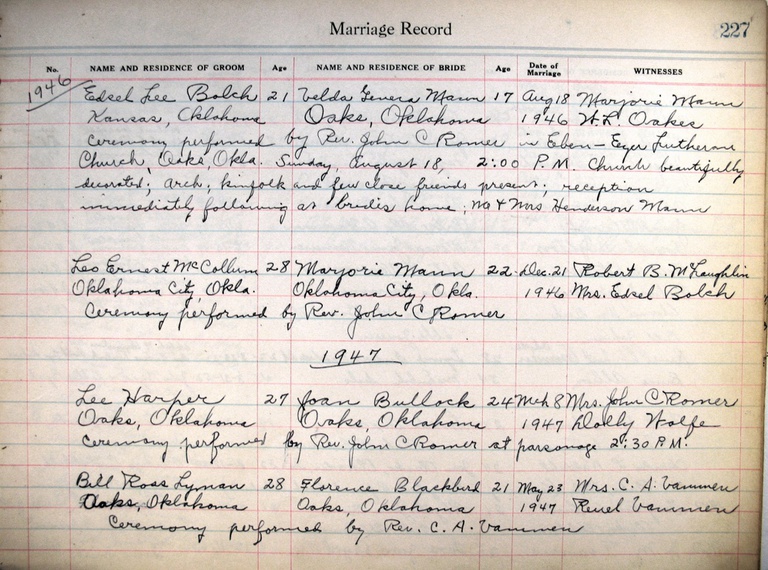 Marriage Record
227
No. NAME AND RESIDENCE OF GROOM Age NAME AND RESIDENCE OF BRIDE Age Date of Marriage WITNESSES
1946
Edsel Lee Bolch 21 Velda Geneva Mann 17 Aug 18 Marjorie Mann
Kansas, Oklahoma Oaks, Oklahoma 1946 W. L. Oakes
Ceremony performed by Rev. John C Romer in Eben-Ezer Lutheran
Church, Oaks, Okla. Sunday, August 18, 2:00 P.M. Church beautifully
decorated; arch; kinfolk and few close friends present; reception
immediately following at bride's home; Mr & Mrs Henderson Mann
Leo Ernest McCollum 28 Marjorie Mann 22 Dec. 21 Robert B. McLaughlin
Oklahoma City, Okla. Oklahoma City, Okla. 1946 Mrs. Edsel Bolch
Ceremony performed by Rev. John C Romer
1947
Lee Harper 27 Joan Bullock 24 Mch 8 Mrs. John C Romer
Oaks, Oklahoma Oaks, Oklahoma 1947 Dolly Wolfe
Ceremony performed by Rev. John C Romer at parsonage 2:30 P.M.
Bill Ross Lyman 28 Florence Blackbird 21 May 23 Mrs. C. A. Vammen
Oaks, Oklahoma Oaks, Oklahoma 1947 Reuel Vammen
Ceremony performed by Rev. C. A. Vammen